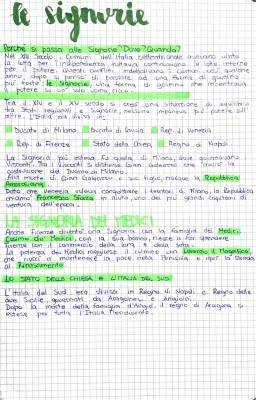 le signorie
Perché si passa alle Signorie? Dove? Quando?
Nel XIII Secolo i Comuni dell'Italia settentrionale avevano vinto
la lotta per l'indipendenza, tuttavia continuavano le lotte interne
per il potere, questi conflitti indebolivano i Comuni così qualche
anno dopo di passare ad una forma di governo
più forte: le Signorie, una forma di governo che incentrava
potere su un solo uomo
Tra il XIV e il XV secolo si creò una situazione di equilibrio
tra Stati regionali e Signorie, nessuno imponeva più potere all'
altro. L'Italia era divisa in:
Ducato di Milano Ducato di Savoia Rep. di Venezia
Rep. di Firenze Stato della Chiesa Regno di Napoli
La Signoria più estesa fu quella di Milano, dove governavano i
Visconti. Tra i Visconti si distinse Gian Galeazzo che avviò la
costruzione del Duomo di Milano.
Alla morte di Gian Galeazzo e suo figlio, nacque la Repubblica
Ambrosiana.
Dato che Venezia voleva conquistare i territori di Milano, la Repubblica
chiamò Francesco Sforza in aiuto, uno dei più grandi capitani di
ventura dell'epoca.
LA SIGNORIA DEI MEDICI
Anche Firenze diventò una Signoria con la famiglia dei Medici.
Cosimo De' Medici, con la sua banca, riuscì a far splendere
Firenze con il commercio della lana e della seta.
La potenza dei Medici raggiunse il culmine con Lorenzo il Magnifico,
che riuscì a mantenere la pace nella Penisola e aprì la strada
al Rinascimento.
LO STATO DELLA CHIESA E L'ITALIA DEL SUD
L'Italia del Sud era divisa in Regno di Napoli e Regno delle
due Sicilie, governati da Aragonesi e Angioini.
Dopo la morte della famiglia d'Angiò, il regno di Aragona si
estese per tutta l'Italia Meridionale.